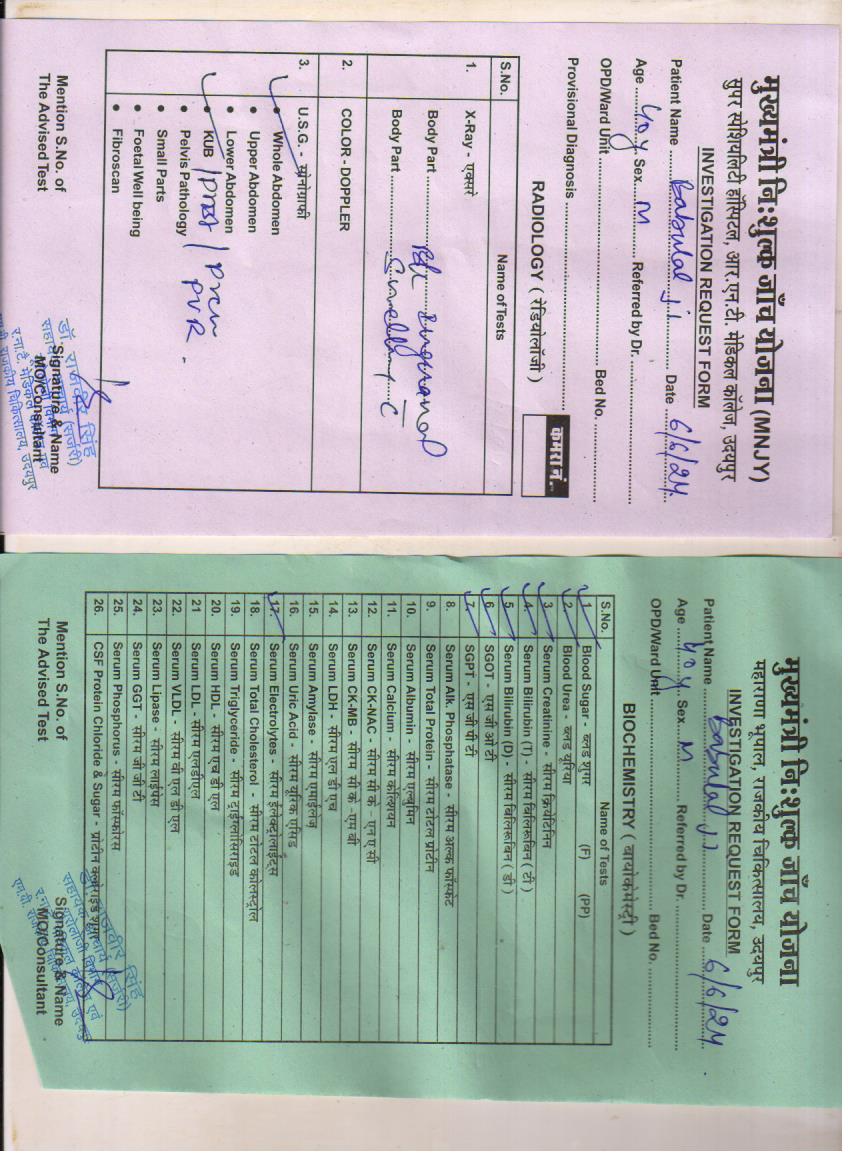 मुख्यमंत्री नि:शुल्क जाँच योजना (MNJY)
सुपर स्पेशियलिटी हॉस्पिटल, आर.एन.टी. मेडिकल कॉलेज, उदयपुर
INVESTIGATION REQUEST FORM
Patient Name Babulal ji Date 6/6/24
Age 40y Sex M Referred by Dr.
OPD/Ward Unit Bed No.
Provisional Diagnosis
RADIOLOGY ( रेडियोलॉजी )
कमरा नं.
S.No. Name of Tests
1. X-Ray - एक्सरे
Body Part
Body Part
2. COLOR - DOPPLER
3. U.S.G. - सोनोग्राफी
• Whole Abdomen
• Upper Abdomen
• Lower Abdomen
• KUB
• Pelvis Pathology PVR
• Small Parts
• Foetal Well being
• Fibroscan
Mention S.No. of
The Advised Test
Signature & Name
MO/Consultant
मुख्यमंत्री नि:शुल्क जाँच योजना
महाराणा भूपाल, राजकीय चिकित्सालय, उदयपुर
INVESTIGATION REQUEST FORM
Patient Name Babulal ji Date 6/6/24
Age 40y Sex M Referred by Dr.
OPD/Ward Unit Bed No.
BIOCHEMISTRY ( बायोकेमेस्ट्री )
S.No. Name of Tests
1. Blood Sugar - ब्लड शुगर (F) (PP)
2. Blood Urea - ब्लड यूरिया
3. Serum Creatinine - सीरम क्रियेटिनिन
4. Serum Bilirubin (T) - सीरम बिलिरूबिन ( टी )
5. Serum Bilirubin (D) - सीरम बिलिरूबिन ( डी )
6. SGOT - एस जी ओ टी
7. SGPT - एस जी पी टी
8. Serum Alk. Phosphatase - सीरम अल्क फॉस्फेट
9. Serum Total Protein - सीरम टोटल प्रोटीन
10. Serum Albumin - सीरम एल्बुमिन
11. Serum Calcium - सीरम केल्शियन
12. Serum CK-NAC - सीरम सी के - एन ए सी
13. Serum CK-MB - सीरम सी के - एम बी
14. Serum LDH - सीरम एल डी एच
15. Serum Amylase - सीरम एमाईलेज
16. Serum Uric Acid - सीरम यूरिक एसिड
17. Serum Electrolytes - सीरम ईलेक्ट्रोलाईट्स
18. Serum Total Cholesterol - सीरम टोटल कोलस्ट्रोल
19. Serum Triglyceride - सीरम ट्राईग्लोसिराइड
20. Serum HDL - सीरम एच डी एल
21 Serum LDL - सीरम एलडीएल
22. Serum VLDL - सीरम वी एल डी एल
23. Serum Lipase - सीरम लाईपेस
24. Serum GGT - सीरम जी जी टी
25. Serum Phosphorus - सीरम फॉस्फोरस
26. CSF Protein Chloride & Sugar - प्रोटीन क्लोराइड शुगर
Mention S.No. of
The Advised Test
Signature & Name
MO/Consultant